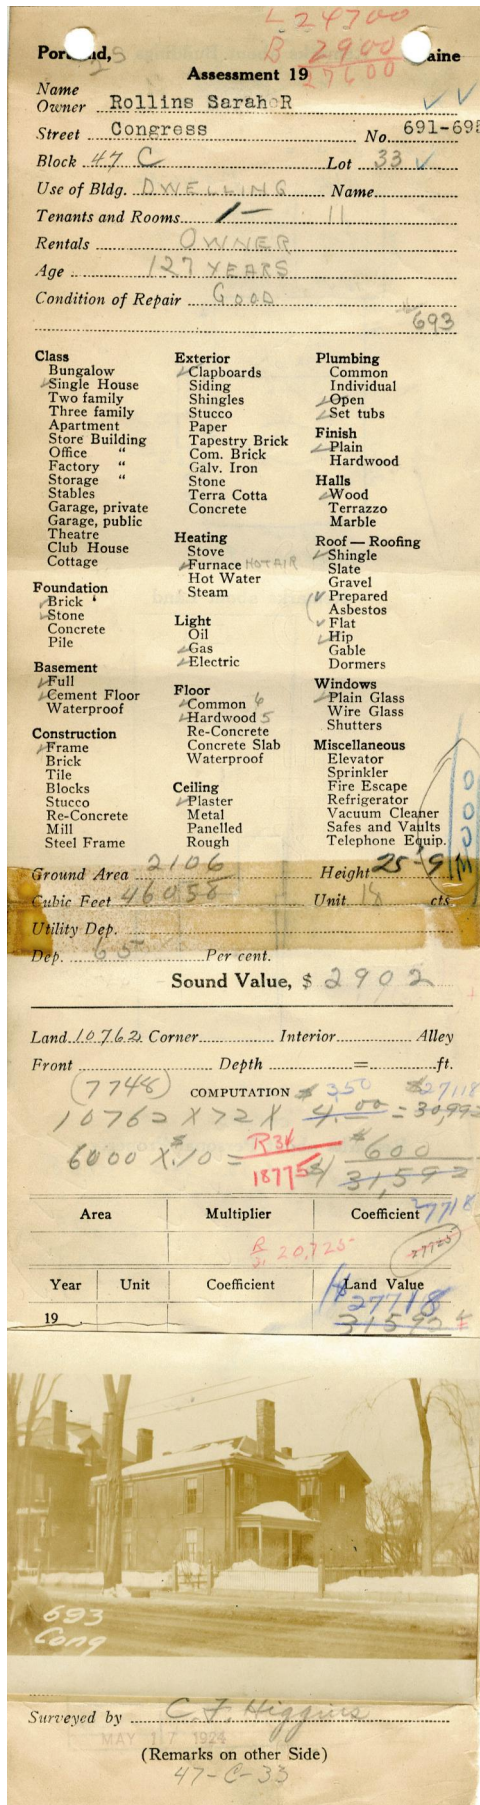 L 24700
B 2900
27600
Portland, Maine
Assessment 19
Name
Owner Rollins Sarah R
Street Congress No. 691-695
Block 47 C Lot 33
Use of Bldg. DWELLING Name
Tenants and Rooms 1- 11
Rentals OWNER
Age 127 YEARS
Condition of Repair GOOD
693
Class
Bungalow
Single House
Two family
Three family
Apartment
Store Building
Office "
Factory "
Storage "
Stables
Garage, private
Garage, public
Theatre
Club House
Cottage
Foundation
Brick
Stone
Concrete
Pile
Basement
Full
Cement Floor
Waterproof
Construction
Frame
Brick
Tile
Blocks
Stucco
Re-Concrete
Mill
Steel Frame
Exterior
Clapboards
Siding
Shingles
Stucco
Paper
Tapestry Brick
Com. Brick
Galv. Iron
Stone
Terra Cotta
Concrete
Heating
Stove
Furnace HOT AIR
Hot Water
Steam
Light
Oil
Gas
Electric
Floor
Common 6
Hardwood 5
Re-Concrete
Concrete Slab
Waterproof
Ceiling
Plaster
Metal
Panelled
Rough
Plumbing
Common
Individual
Open
Set tubs
Finish
Plain
Hardwood
Halls
Wood
Terrazzo
Marble
Roof — Roofing
Shingle
Slate
Gravel
Prepared
Asbestos
Flat
Hip
Gable
Dormers
Windows
Plain Glass
Wire Glass
Shutters
Miscellaneous
Elevator
Sprinkler
Fire Escape
Refrigerator
Vacuum Cleaner
Safes and Vaults
Telephone Equip.
Ground Area 2106 Height 25'-9"
Cubic Feet 46058 Unit 18 cts.
Utility Dep.
Dep. 65 Per cent.
Sound Value, $ 2902
Land 10762 Corner Interior Alley
Front Depth = ft.
7748 COMPUTATION $ 3.50 $27118
10762 X 72 X 4.00 = 30,992
6000 X $.10 = R34 $600
18775 $31,592
Area Multiplier Coefficient 27718
R 20,725 27725
Year Unit Coefficient Land Value
$27718
19 31592
693
Cong
Surveyed by C. F. Higgins
MAY 17 1924
(Remarks on other Side)
47-C-33